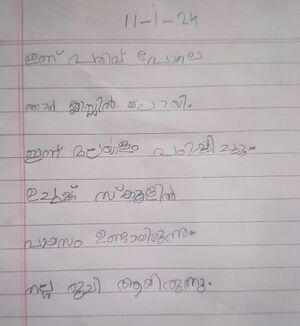 11-1-24
ഇന്ന് പതിവ് പോലെ
ഞാൻ ക്ലാസ്സിൽ പോയി.
ഇന്ന് മലയാളം പഠിപ്പിച്ചു.
ഉച്ചക്ക് സ്കൂളിൽ
പായസം ഉണ്ടായിരുന്നു.
നല്ല രുചി ആയിരുന്നു.